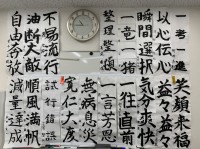 一考一進
以心伝心
瞬間選択
一竜一猪
整理整頓
不易流行
油断大敵
自由奔放
笑顔来福
益々益々
気分爽快
一往直前
一言芳恩
無病息災
寛仁大度
試行錯誤
順風満帆
減量達成